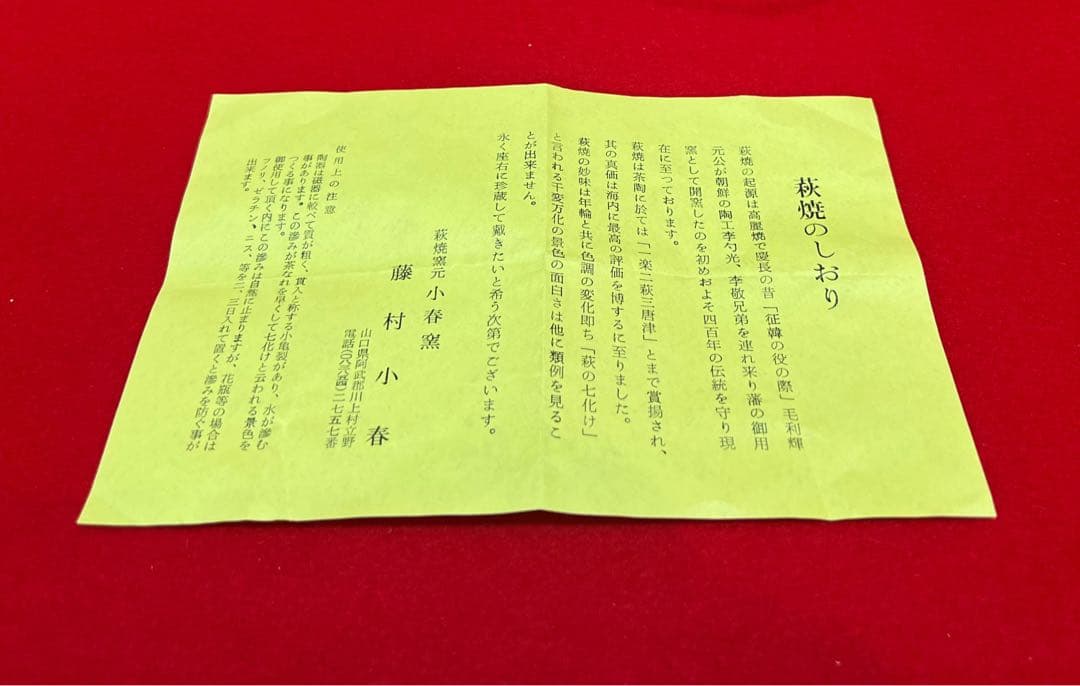 萩焼のしおり
萩焼の起源は高麗焼で慶長の昔「征韓の役の際」毛利輝
元公が朝鮮の陶工李勺光、李敬兄弟を連れ来り藩の御用
窯として開窯したのを初めおよそ四百年の伝統を守り現
在に至つております。
萩焼は茶陶に於ては「一楽二萩三唐津」とまで賞揚され、
其の真価は海内に最高の評価を博するに至りました。
萩焼の妙味は年輪と共に色調の変化即ち「萩の七化け」
と言われる千変万化の景色の面白さは他に類例を見るこ
とが出来ません。
永く座右に珍蔵して戴きたいと希う次第でございます。
萩焼窯元 小春窯
藤村小春
山口県阿武郡川上村立野
電話(〇八三八五四)二七五七番
使用上の注意
陶器は磁器に較べて質が粗く、貫入と称する小亀裂があり、水が滲む
事があります。この滲みが茶なれを早くして七化けと云われる景色を
つくる事になります。
御使用して頂く内にこの滲みは自然に止まりますが、花瓶等の場合は
フノリ、ゼラチン、ニス、等を二、三日入れて置くと滲みを防ぐ事が
出来ます。